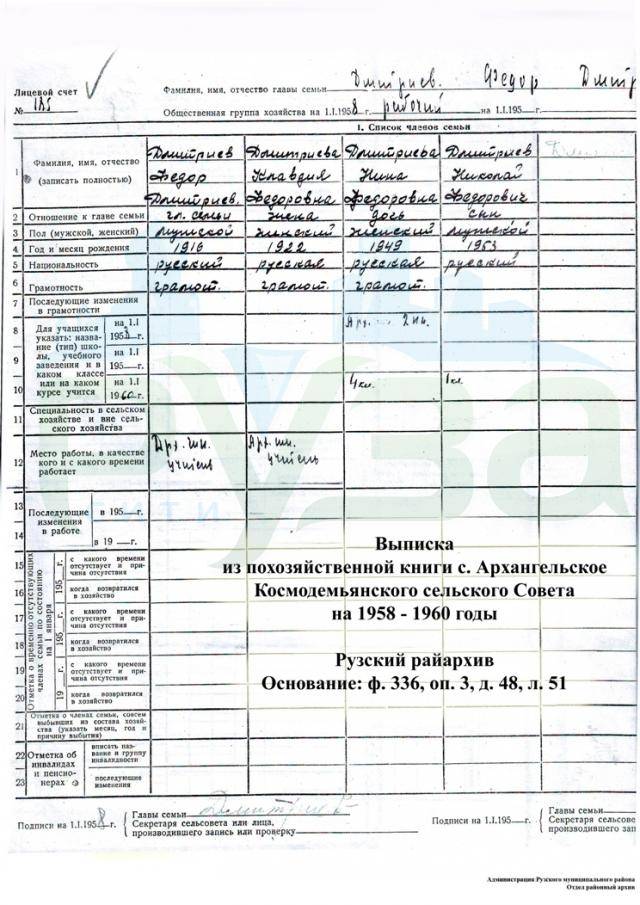 Лицевой счет
№ 185
Фамилия, имя, отчество главы семьи Дмитриев Федор Дмитр
Общественная группа хозяйства на 1.I.1958 г. рабочий на 1.I.195 — г.
1. Список членов семьи
1 Фамилия, имя, отчество (записать полностью) Дмитриев Дмитриева Дмитриева Дмитриев
Федор Клавдия Нина Николай
Дмитриев. Федоровна Федоровна Федорович
2 Отношение к главе семьи гл. семьи жена дочь сын
3 Пол (мужской, женский) мужской женский женский мужской
4 Год и месяц рождения 1916 1922 1949 1953
5 Национальность русский русская русская русский
6 Грамотность грамот. грамот. грамот.
7 Последующие изменения в грамотности
8 Для учащихся указать: название (тип) школы, учебного заведения и в каком классе или на каком курсе учится
на 1.I 1958 г. Арх. 2 кл.
9 на 1.I 195—г.
10 на 1.I 1960 г. 4 кл. 1 кл.
11 Специальность в сельском хозяйстве и вне сельского хозяйства
12 Место работы, в качестве кого и с какого времени работает Арх. шк. Арх. шк.
учитель учитель
13 Последующие изменения в работе в 195—г.
14 в 19 —г.
Отметка о временно отсутствующих членах семьи по состоянию на 1 января
15 195 г. с какого времени отсутствует и причина отсутствия
16 когда возвратился в хозяйство
17 195 г. с какого времени отсутствует и причина отсутствия
18 когда возвратился в хозяйство
19 19 г. с какого времени отсутствует и причина отсутствия
20 когда возвратился в хозяйство
21 Отметка о членах семьи, совсем выбывших из состава хозяйства (указать месяц, год и причину выбытия)
22 Отметка об инвалидах и пенсионерах вписать название и группу инвалидности
23 последующие изменения
Выписка
из похозяйственной книги с. Архангельское
Космодемьянского сельского Совета
на 1958 - 1960 годы
Рузский райархив
Основание: ф. 336, оп. 3, д. 48, л. 51
Подписи на 1.I.1958 г.
Главы семьи Дмитриев
Секретаря сельсовета или лица,
производившего запись или проверку
Подписи на 1.I.195—г.
Главы семьи
Секретаря сельсове
производившего зап
РУЗА
Администрация Рузского муниципального района
Отдел районный архив